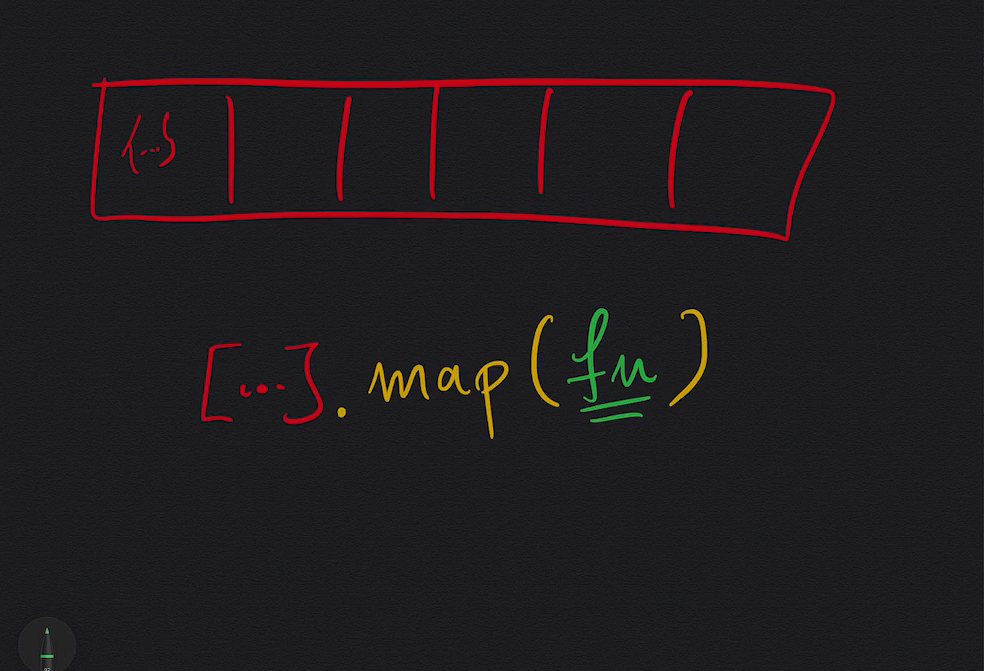 {...}
[...].map(fn)